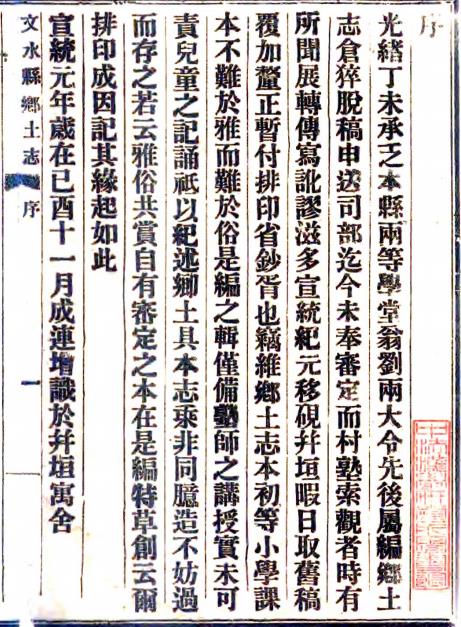 序
光緒丁未承乏本縣兩等學堂翁劉兩大令先後屬編鄉土
志倉猝脫稿申送司部迄今未奉審定而村塾索觀者時有
所聞展轉傳寫訛謬滋多宣統紀元移硯幷垣暇日取舊稿
覆加釐正暫付排印省鈔胥也竊維鄉土志本初等小學課
本不難於雅而難於俗是編之輯僅備塾師之講授實未可
責兒童之記誦祇以紀述鄉土具本志乘非同臆造不妨過
而存之若云雅俗共賞自有審定之本在是編特草創云爾
排印成因記其緣起如此
宣統元年歲在己酉十一月成連增識於幷垣寓舍
文水縣鄉土志
序
一